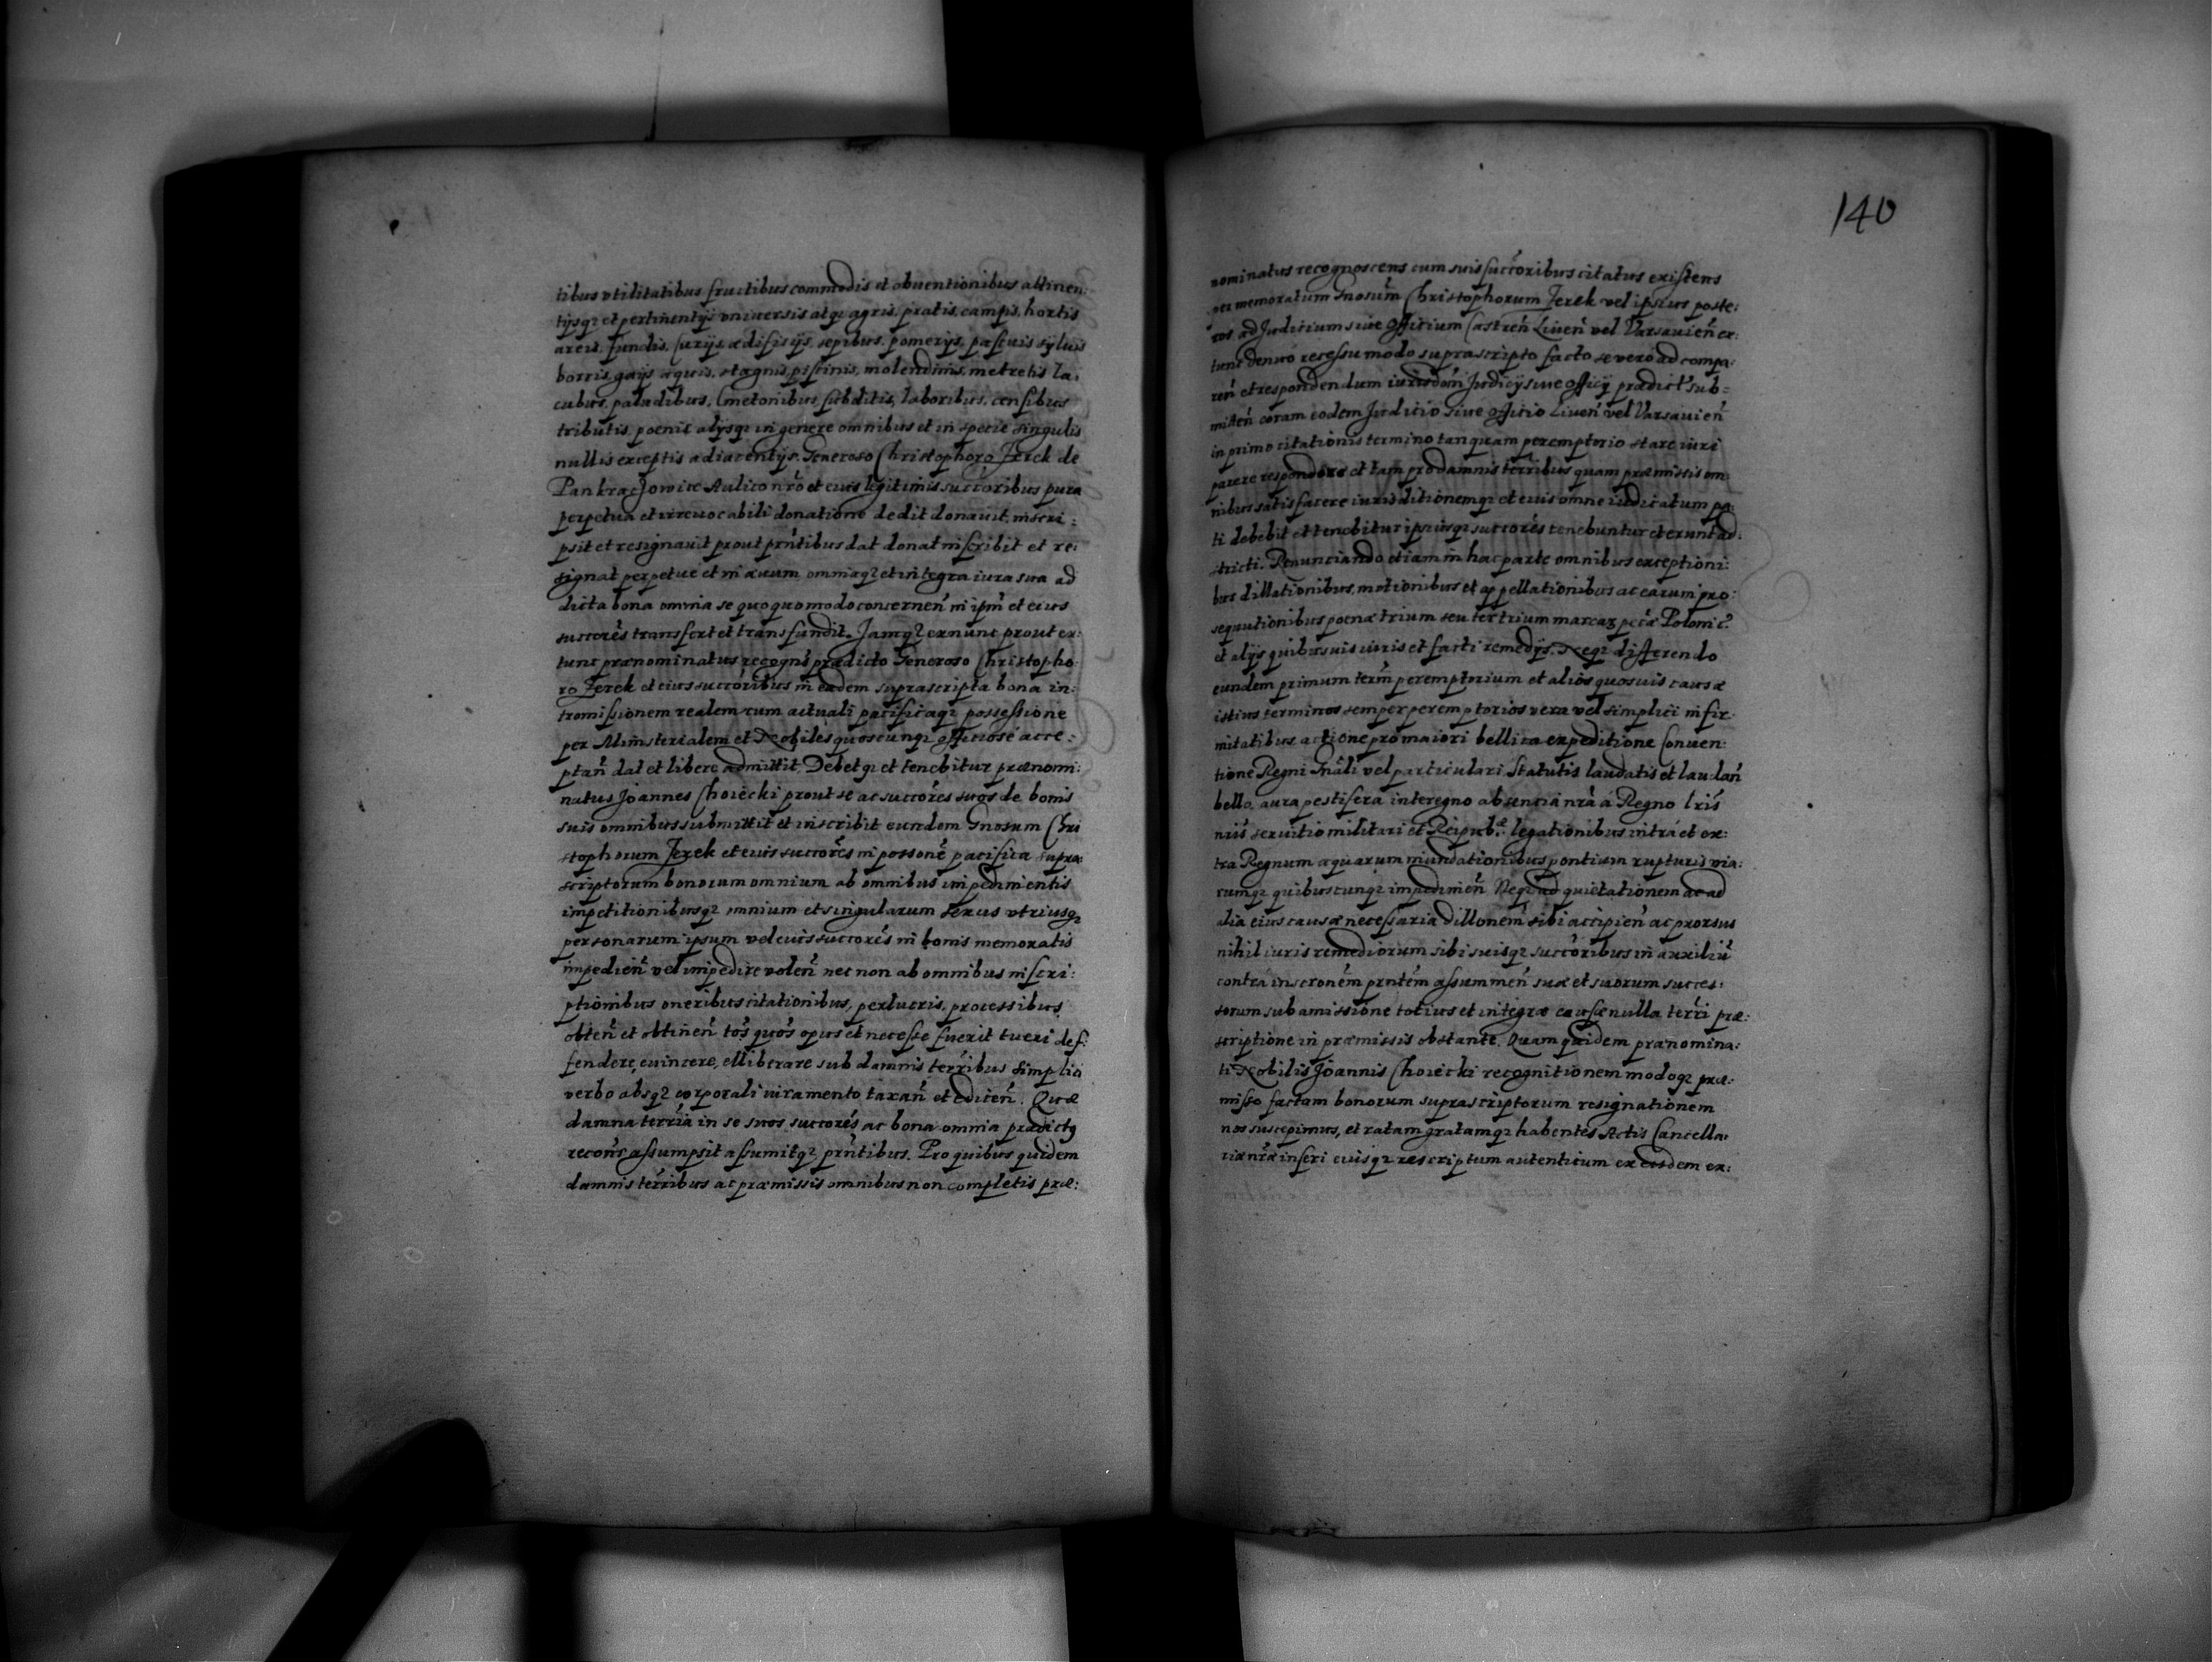 tibus vtilitatibus fructibus commodis et obuentionibus attinen:
tijsq; et pertinentijs vniuersis atq; agris, pratis, campis, hortis
areis, fundis, Curijs, ædifitijs, sepibus, pomerijs, pascuis syluis
borris, gaijs aquis, stagnis, piscinis, molendinis, metretis la:
cubus, paludibus, Cmetonibus subditis, laboribus, censibus
tributis, poenis alijsq; in genere omnibus et in specie singulis
nullis exceptis adiacentijs. Generoso Christophoro Jerek de
Pankraczowice Aulico nr̃o et eius legitimis succ̃oribus pura
perpetua et irreuocabili donatione dedit donauit, inscri:
psit et resignauit prout prñtibus dat donat inscribit et re:
signat perpetue et in æuum omniaq; et integra iura sua ad
dicta bona omnia se quoquomodo concernen̄ in ipm̃ et eius
succores̃ transfert et transfundit. Jamq; ex nunc prout ex:
tunc prænominatus recogns̃ prædicto Generoso Christopho:
ro Jerek et eius succ̃oribus in eadem suprascripta bona in:
tromissionem realem cum actuali pacificaq; possessione
per Ministerialem et Nobiles quoscunq; officiose acce:
ptan̄ dat et libere admittit. Debetq; et tenebitur prænomi:
natus Joannes Choiecki prout se ac succores̃ suos de bonis
suis omnibus submittit et inscribit eundem Gnosum Chri
stophorum Jerek et eius succores̃ in possonẽ pacifica supra:
scriptorum bonorum omnium ab omnibus impedimentis
impetitionibusq; omnium et singularum sexus vtriusq;
personarum ipsum vel eius succores̃ in bonis memoratis
impedien̄ vel impedire volen̄ nec non ab omnibus inscri:
ptionibus oneribus citationibus, perlucris, processibus
obten̄ et obtinen̄ tos̃ quos̃ opus et necesse fuerit tueri def:
fendere, euincere, elliberare sub damnis terr̃ibus simplici
verbo absq; corporali iuramento taxan̄ et edicen̄. Quæ
damna terr̃ia in se suos succores̃ ac bona omnia prædictq
recons̃ assumpsit assumitq; prñtibus. Pro quibus quidem
damnis terr̃ibus ac præmissis omnibus non completis præ:
140
nominatus recognoscens cum suis succ̃oribus citatus existens
per memoratum Gnosum̃ Christophorum Jerek vel ipsius poste:
ros ad Juditium siue Offitium Castren̄ Liuen̄ vel Varsauien̄ ex:
tunc denuo recessu modo suprascripto facto se vero ad compa:
ren̄ et respondendum iurisdõni Judicij siue officij prædict sub=
mitten̄ coram eodem Juditio siue offitio Liuen̄ vel Varsauien̄
in primo citationis termino tanquam peremptorio stare iuri
parere respondere et tam pro damnis terr̃ibus quam præmissis om:
nibus satisfacere iurisditionemq; et eius omne iudicatum pa:
ti debebit et tenebitur ipsiusq; succores̃ tenebuntur et erunt ad:
stricti. Renunciando etiam in hac parte omnibus exceptioni:
bus dillationibus, motionibus et appellationibus ac earum pro:
sequutionibus poenæ trium seu tertrium marcar̃ pecũæ Polonic̃
et alijs quibusuis iuris et facti remedijs. Neq; differendo
eundem primum term̃ peremptorium et alios quosuis causæ
istius terminos semper peremptorios vera vel simplici infir:
mitatibus actione pro maiori bellica expeditione Conuen:
tione Regni Gnãli vel particulari Statutis laudatis et laudan̄
bello, aura pestifera interegno absencia nr̃a á Regno lris̃
nris̃ seruitio militari et Reipub.æ legationibus intrá et ex:
tra Regnum aquarum inundationibus pontium rupturis via:
rumq; quibuscunq; impedimen̄ Neq; ad quietationem ac ad
alia eius causæ necessaria dillonem̃ sibi accipien̄ ac prorsus
nihil iuris remediorum sibi suisq; succ̃oribus in auxiliũ
contra inscronẽm prntẽm assummen̄ suæ et suorum succes:
sorum sub amissione totius et integræ causæ nulla terr̃i præ:
scriptione in præmissis obstante. Quam quidem prænomina:
ti Nobilis Joannis Choiecki recognitionem modoq; præ:
misso factam bonorum suprascriptorum resignationem
nos suscepimus, et ratam gratamq; habentes Actis Cancella:
riæ nr̃æ inseri eiusq; rescriptum autenticum ex eisdem ex: